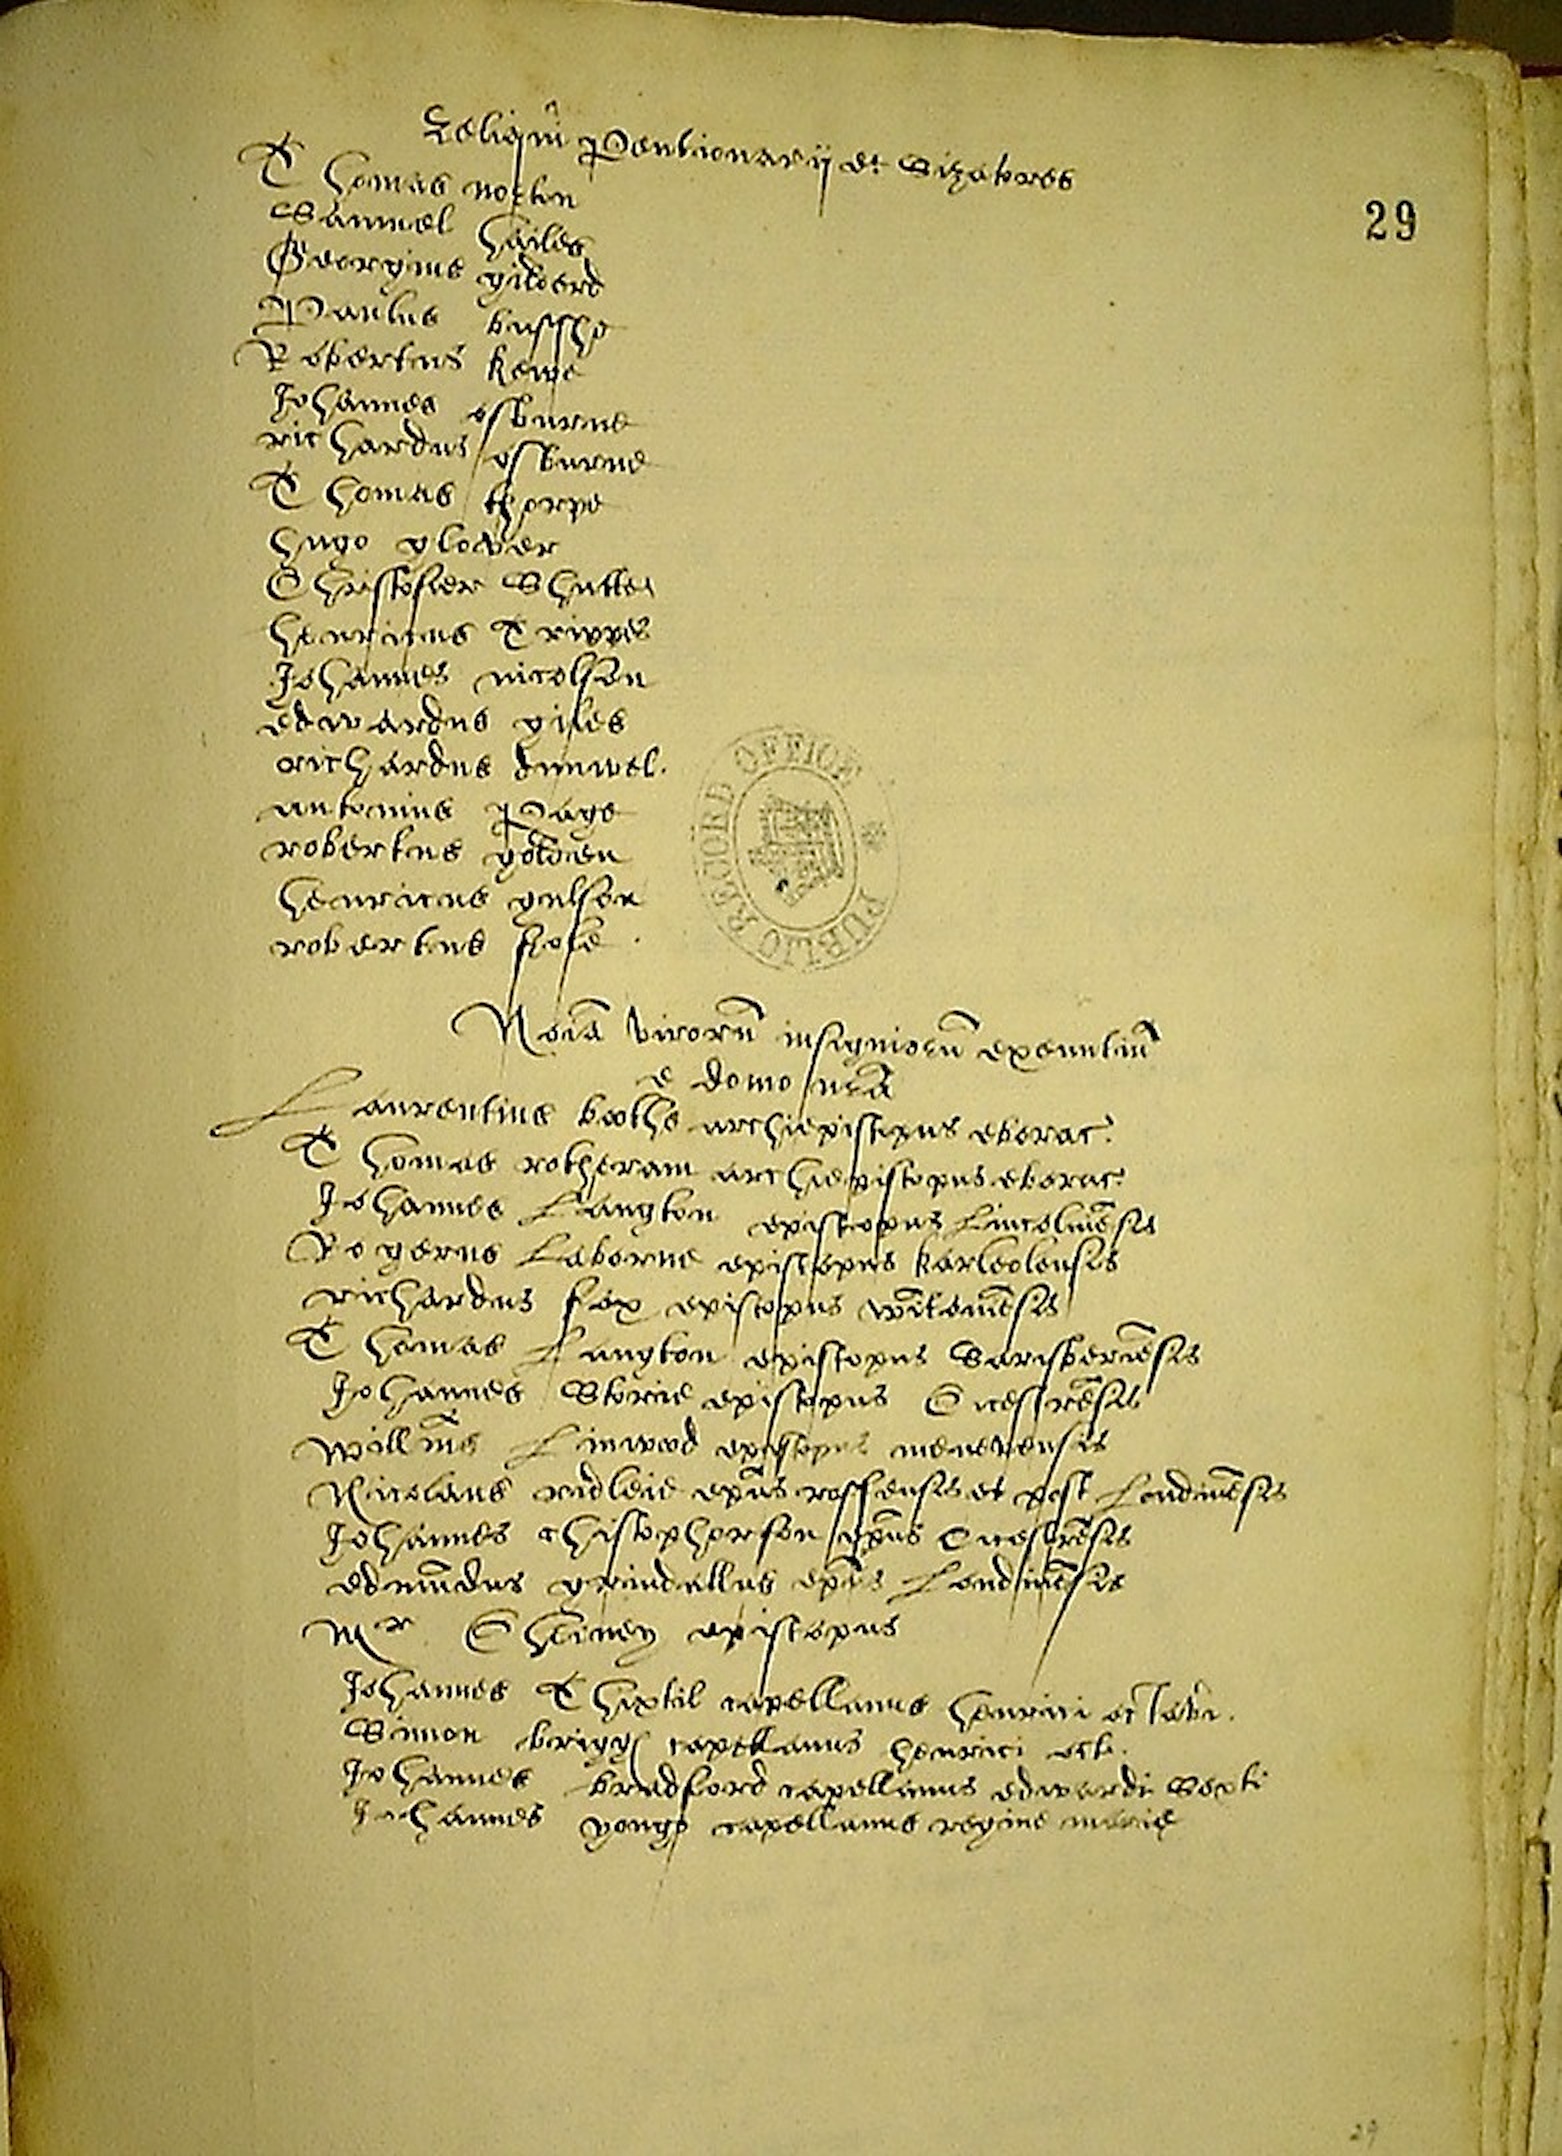 Reliqui Pentionarij et Sizatores
29
Thomas norton
Samuel hailes
Georgius gilberd
Paulus bussh
Robertus kewe
Johannes osburne
richardus osburne
Thomas thorpe
hugo glover
Christofer Shutte
henricus Trippes
Johannes nicolson
edwardus giles
richardus dunwel.
antonius Page
robertus golden
henricus gulson
robertus
PUBLIC RECORD OFFICE
Noīa virorū insigniorū exeuntiū
e domo nrā
Laurentius boothe archiepiscopus eborac.
Thomas rotheram archiepiscopus eborac.
Johannes Langton episcopus Lincolnēsis
Rogerus Laborne episcopus karleolensis
richardus fox episcopus wītoniēsis
Thomas Langton episcopus Sarisberiēsis
Johannes Storie episcopus Cicestrēsis
willmūs Linwod episcopus menevensis
Nicolaus ridleie epūs roffensis et post Londinēsis
Johannes christopherson epūs Cicestrēsis
edmūdus grindallus epūs Londinēsis
Mr episcopus
Johannes Thixtil capellanus henrici octavi.
Simon brigg capellanus henrici oct.
Johannes bradford capellanus edwardi Sexti
Johannes yonge capellanus regine marie
29